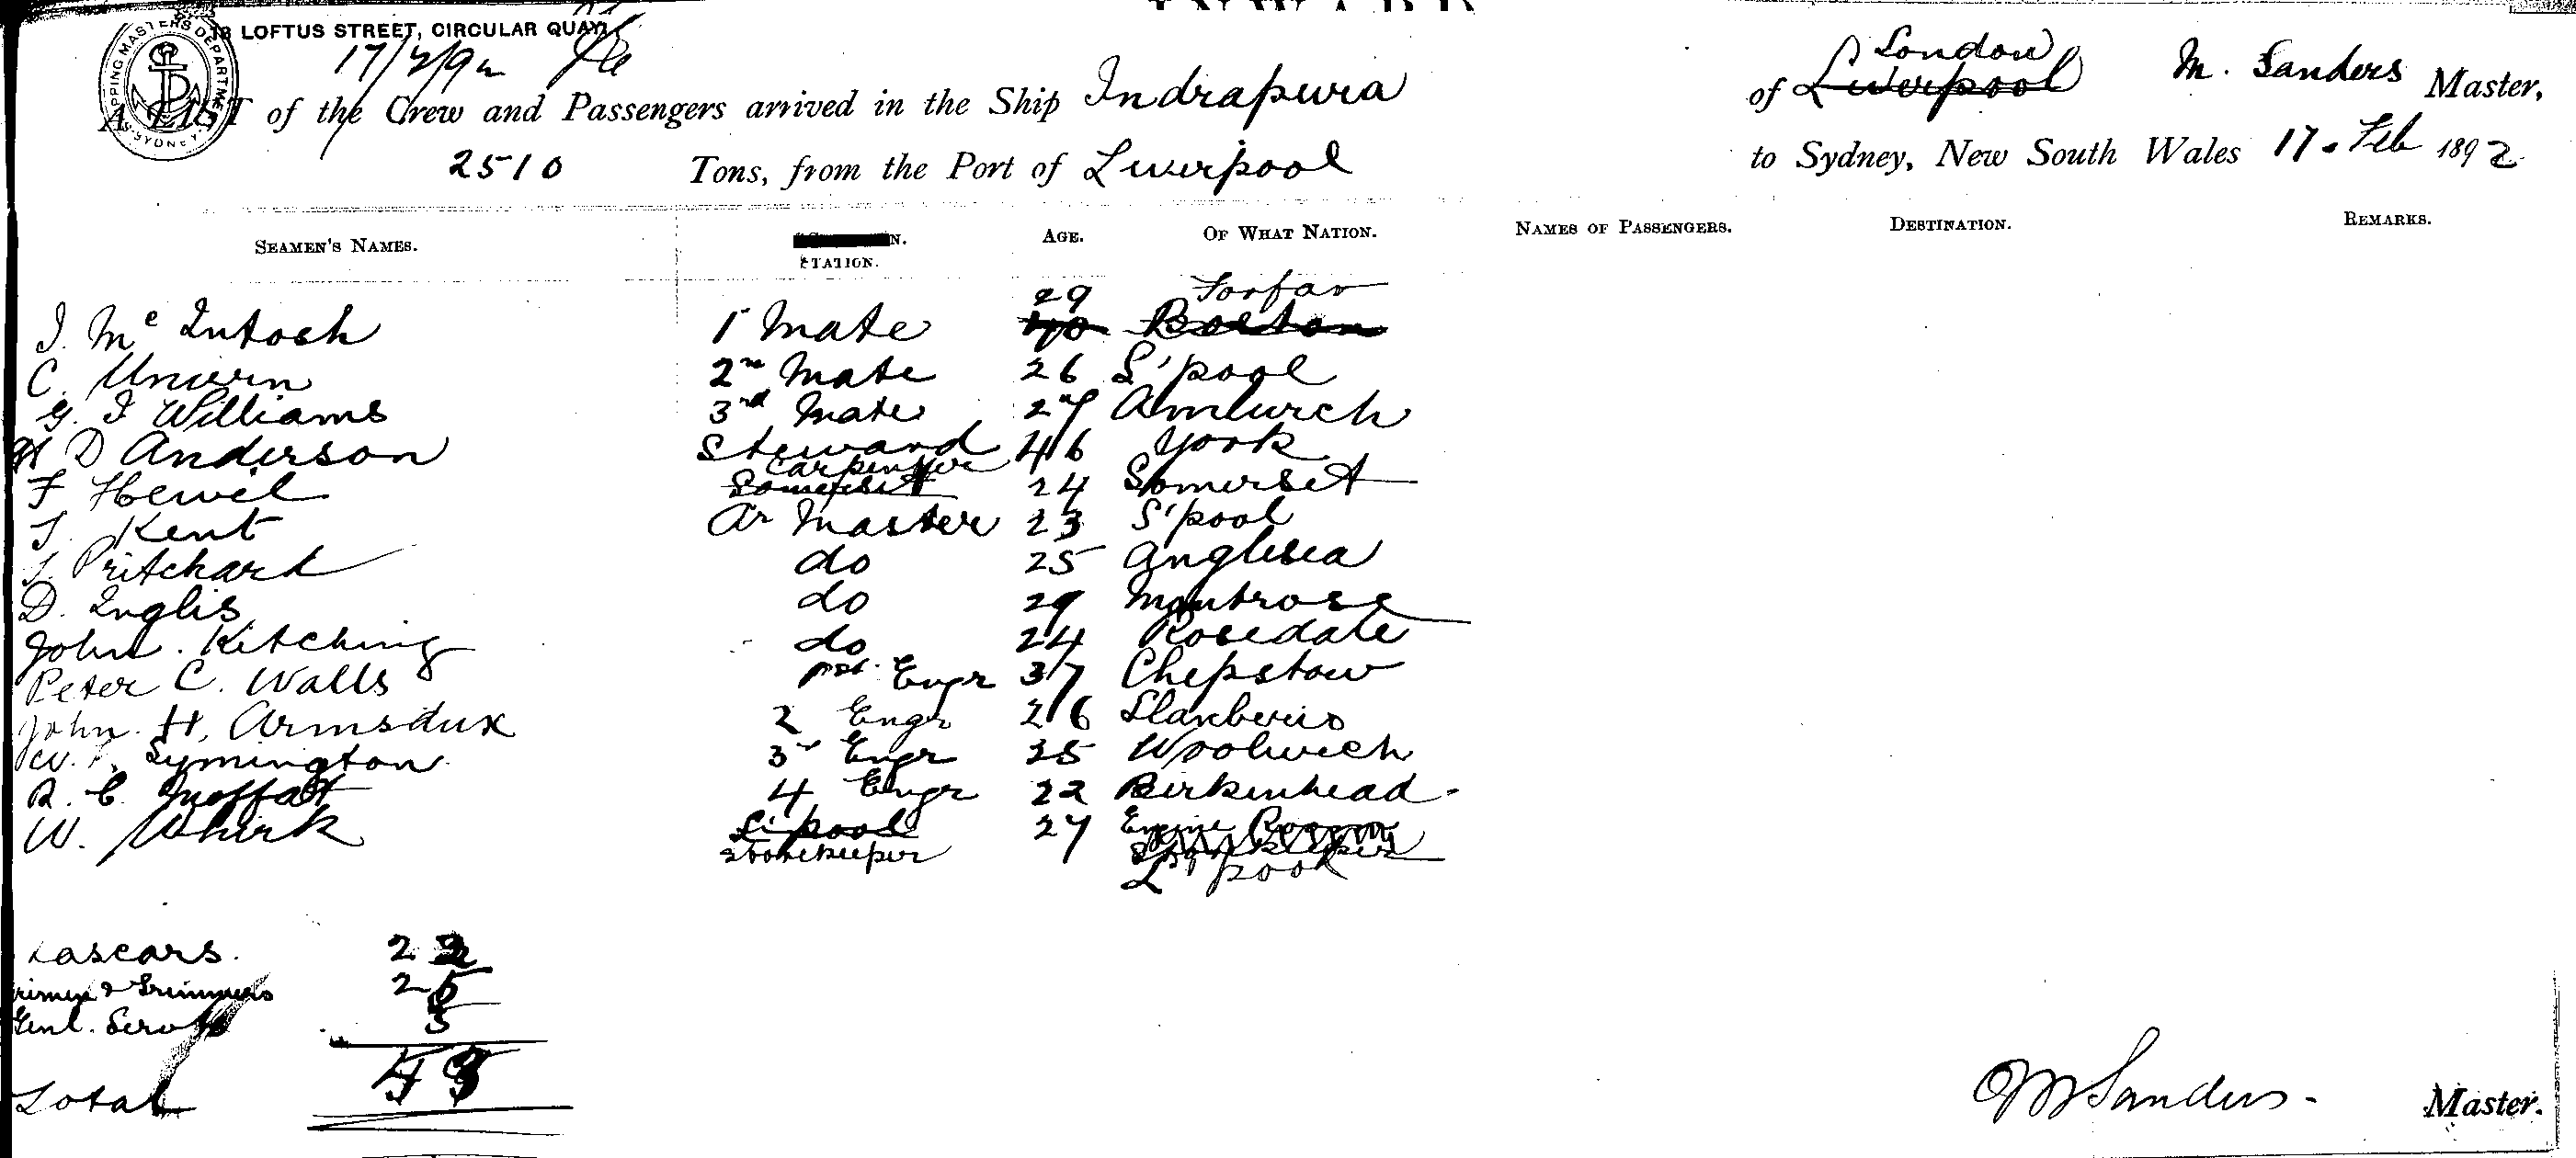 18 LOFTUS STREET, CIRCULAR QUAY.
SHIPPING MASTERS DEPARTMENT SYDNEY
17/2/92
A LIST of the Crew and Passengers arrived in the Ship Indrapura of Liverpool London M. Sanders Master,
2510 Tons, from the Port of Liverpool to Sydney, New South Wales 17. Feb 1892
SEAMEN'S NAMES. STATION. AGE. OF WHAT NATION. NAMES OF PASSENGERS. DESTINATION. REMARKS.
J. Mc Intosh 1 Mate 40 29 Boston Forfar
C. Unwin 2nd Mate 26 L'pool
G. J Williams 3rd Mate 27 Amlwch
H D Anderson Steward 46 York
F Hewel Somerset Carpenter 24 Somerset
J. Kent Qr Master 23 L'pool
J. Pritchard do 25 Anglesea
D. Inglis do 29 Montrose
John. Kitching do 24 Rosedale
Peter C. Walls 1st. Engr 37 Chepstow
John. H. Armsdux 2 Engr 26 Llanberis
W. Symington 3r Engr 25 Woolwich
R. C. Moffat 4 Engr 22 Birkenhead
W. Whirk L'pool Storekeeper 27 Engine Room Storekeeper L'pool
Lascars. 22
Firemen & Trimmers 26
Genl. Servts 5
Total
M Sanders. Master.